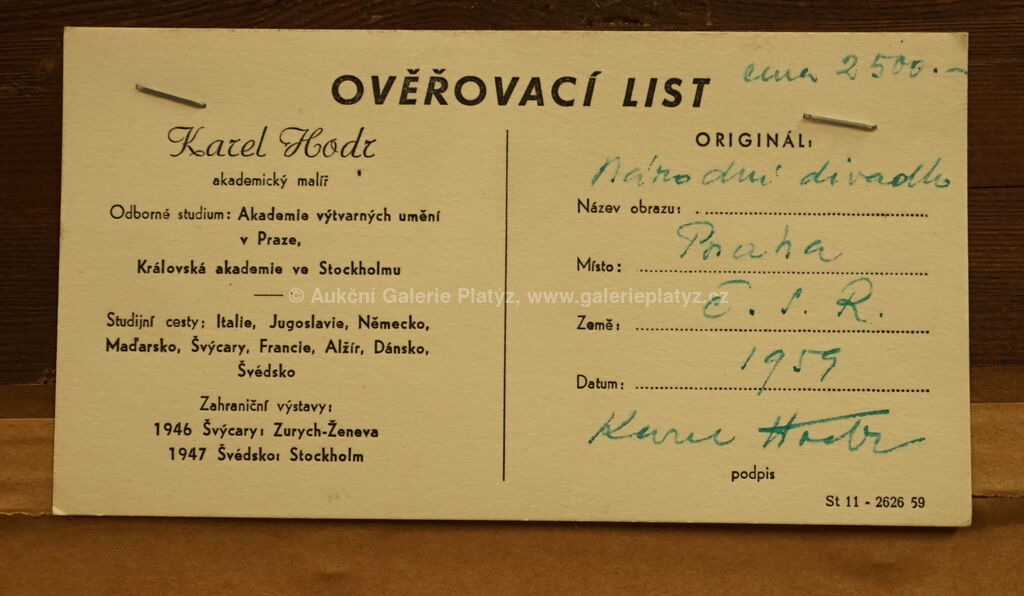 OVĚŘOVACÍ LIST
cena 2500.-
Karel Hodr
akademický malíř
Odborné studium: Akademie výtvarných umění
v Praze,
Královská akademie ve Stockholmu
© Aukční Galerie Platýz, www.galerieplatyz.cz
Studijní cesty: Italie, Jugoslavie, Německo,
Maďarsko, Švýcary, Francie, Alžír, Dánsko,
Švédsko
Zahraniční výstavy:
1946 Švýcary: Zurych-Ženeva
1947 Švédsko: Stockholm
ORIGINÁL:
Národní divadlo
Název obrazu:
Praha
Místo:
Č. S. R.
Země:
1959
Datum:
Karel Hodr
podpis
St 11 - 2626 59